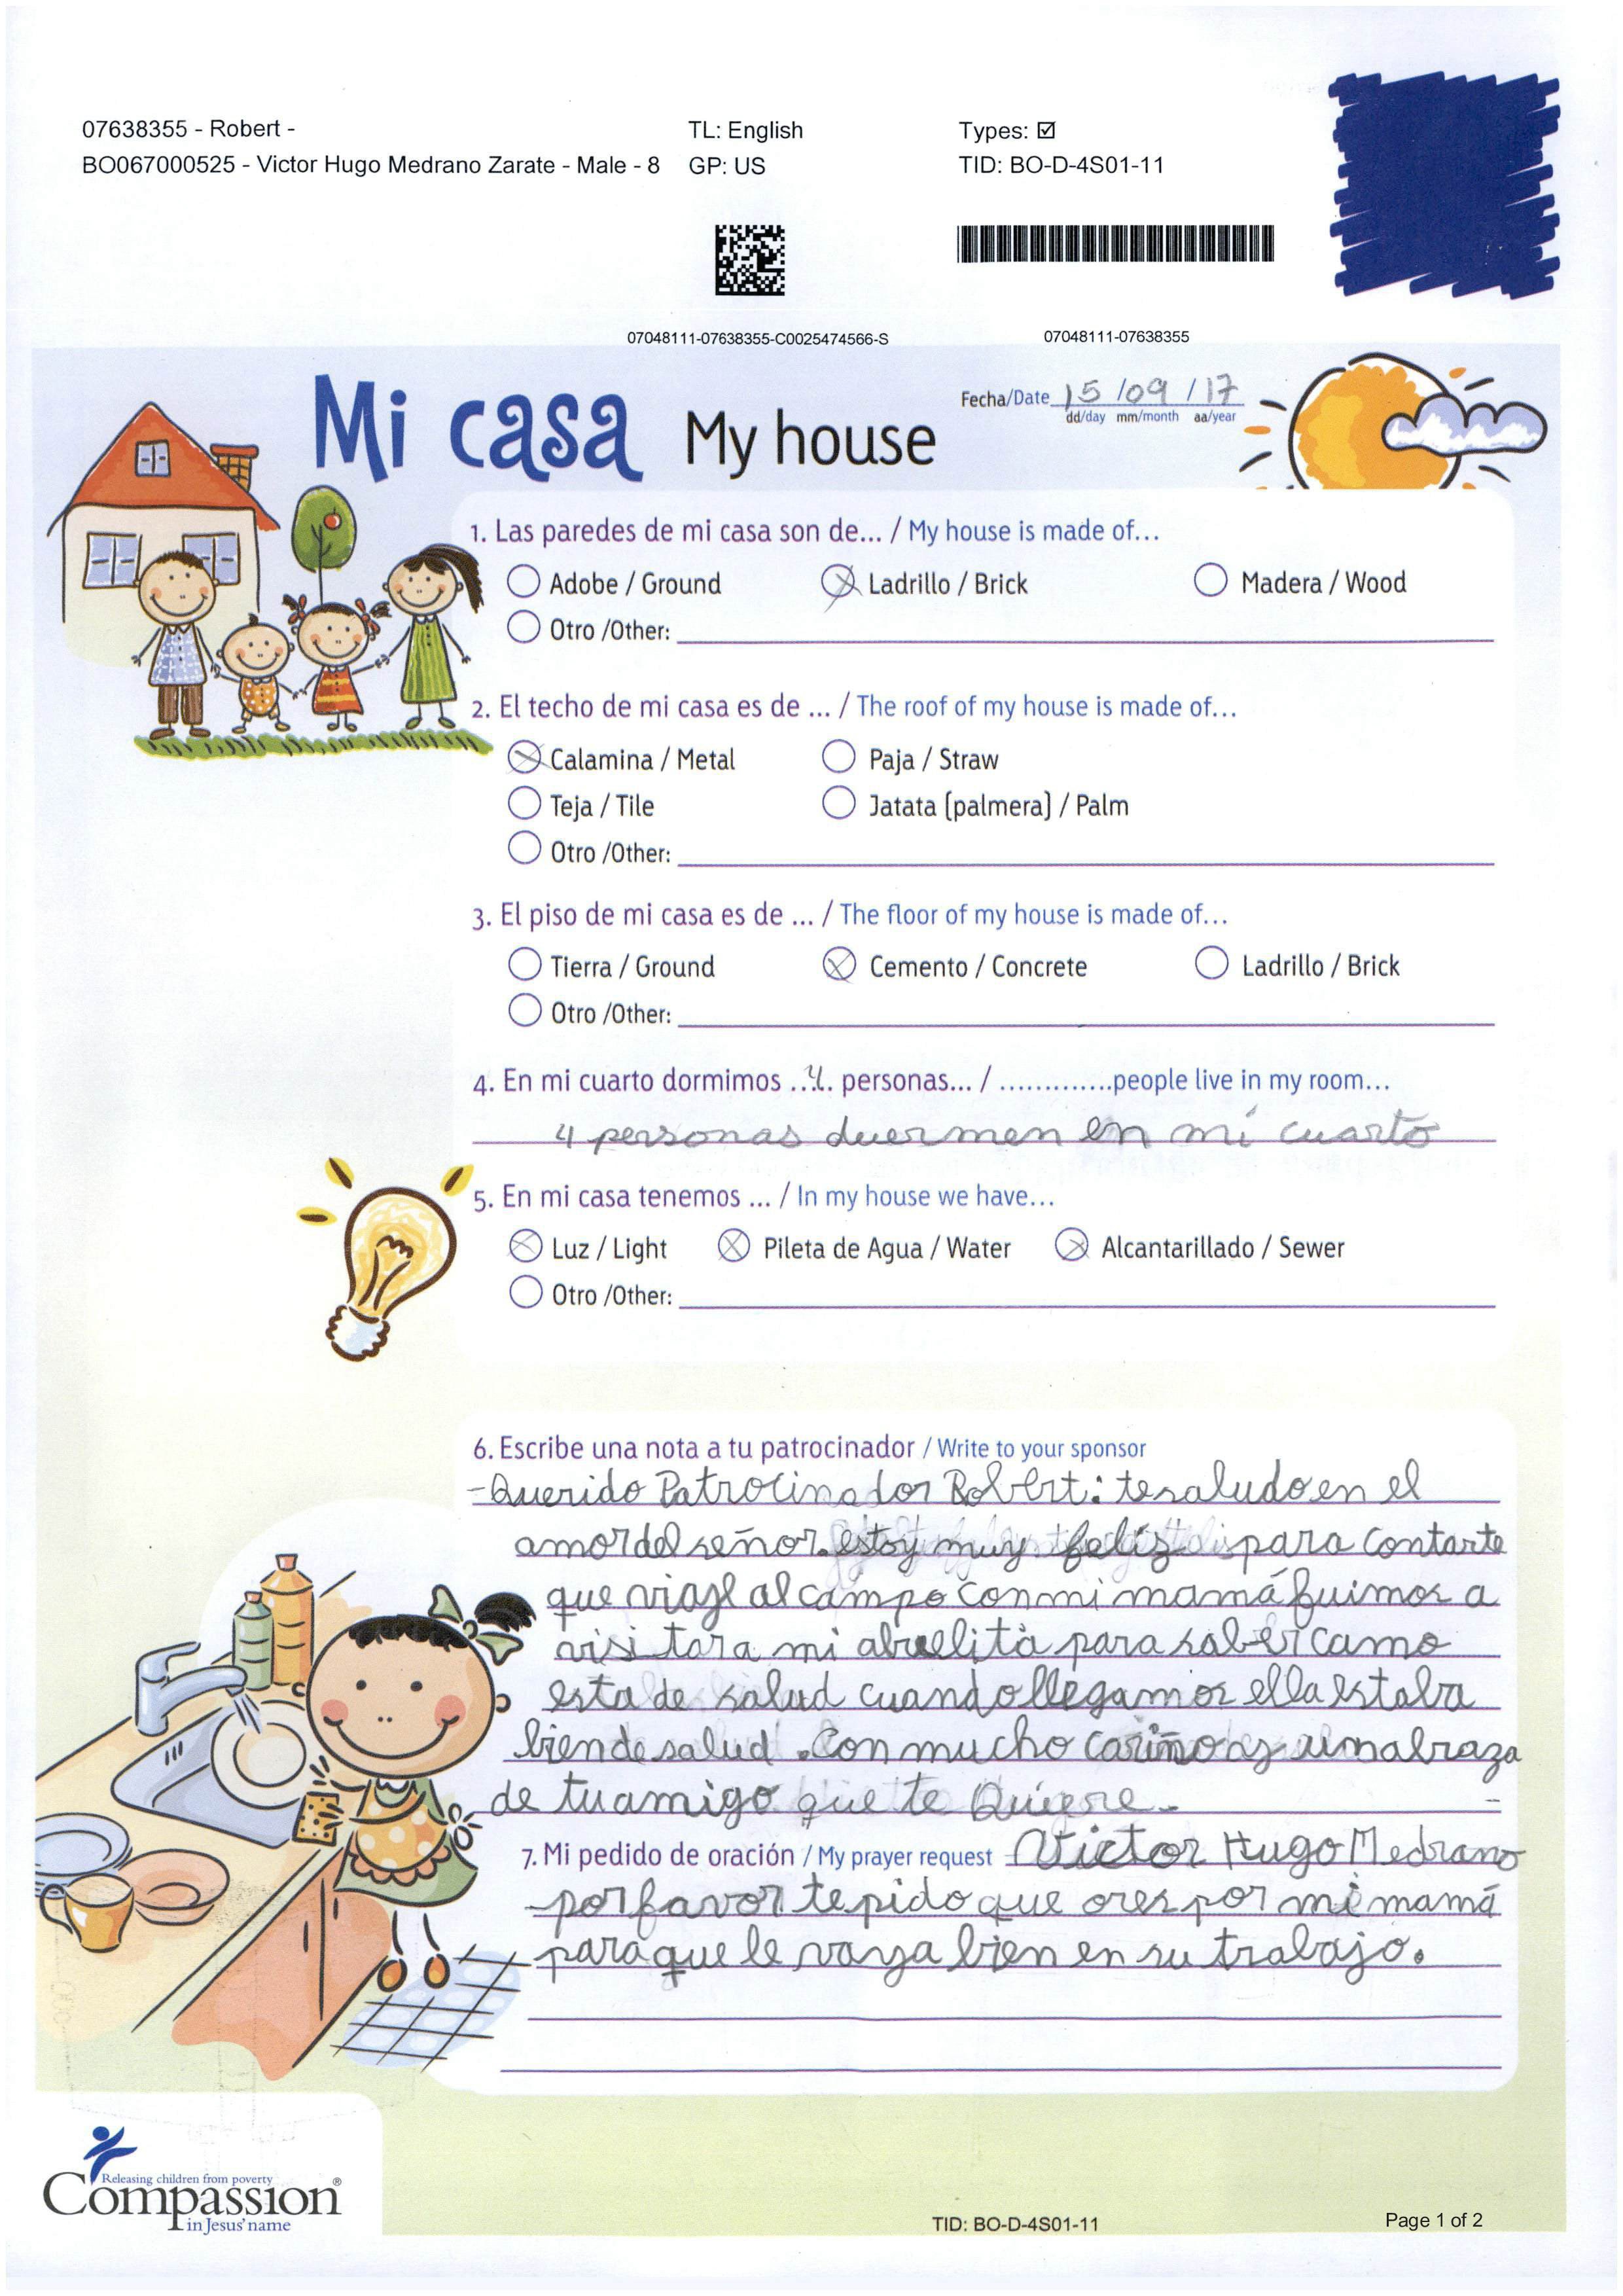 07638355 - Robert -
TL: English
Types: ☑
BO067000525 - Victor Hugo Medrano Zarate - Male - 8
GP: US
TID: BO-D-4S01-11
07048111-07638355-C0025474566-S
07048111-07638355
Mi casa My house
Fecha/Date 15 /09 /17
dd/day mm/month aa/year
1. Las paredes de mi casa son de... / My house is made of...
Adobe / Ground
Ladrillo / Brick
Madera / Wood
Otro /Other:
2. El techo de mi casa es de ... / The roof of my house is made of...
Calamina / Metal
Paja / Straw
Teja / Tile
Jatata (palmera) / Palm
Otro /Other:
3. El piso de mi casa es de ... / The floor of my house is made of...
Tierra / Ground
Cemento / Concrete
Ladrillo / Brick
Otro /Other:
4. En mi cuarto dormimos ..4. personas... / .............people live in my room...
4 personas duermen en mi cuarto
5. En mi casa tenemos ... / In my house we have...
Luz / Light
Pileta de Agua / Water
Alcantarillado / Sewer
Otro /Other:
6. Escribe una nota a tu patrocinador / Write to your sponsor
-Querido Patrocinador Robert: te saludo en el
amor del señor. estoy muy feliz para contarte
que viaje al campo con mi mamá fuimos a
visitar a mi abuelita para saber camo
esta de salud cuando llegamos ella estaba
bien de salud. Con mucho cariño
de tu amigo que te Quiere.-
7. Mi pedido de oración / My prayer request Victor Hugo Medrano
-por favor te pido que ores por mi mamá
-para que le vaya bien en su trabajo.
Releasing children from poverty
Compassion®
in Jesus' name
TID: BO-D-4S01-11
Page 1 of 2